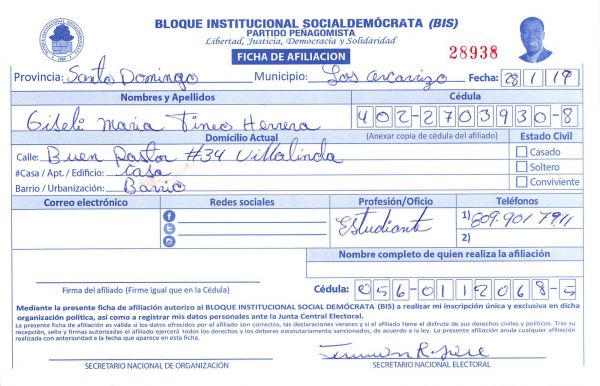 BLOQUE INSTITUCIONAL SOCIALDEMÓCRATA (BIS)
PARTIDO PEÑAGOMISTA
Libertad, Justicia, Democracia y Solidaridad
FICHA DE AFILIACION 28938
Provincia: Santo Domingo Municipio: Los alcarrizo Fecha: 28 1 19
Nombres y Apellidos Cédula
Giseli Maria Tineo Herrera 402-2703930-8
Domicilio Actual (Anexar copia de cédula del afiliado) Estado Civil
Calle: Buen Pastor #34 Villalinda Casado
#Casa / Apt. / Edificio: Casa Soltero
Barrio / Urbanización: Barrio Conviviente
Correo electrónico Redes sociales Profesión/Oficio Teléfonos
Estudiante 1) 809.901 7911
2)
Nombre completo de quien realiza la afiliación
Firma del afiliado (Firme igual que en la Cédula) Cédula: 056-0112068-5
Mediante la presente ficha de afiliación autorizo al BLOQUE INSTITUCIONAL SOCIAL DEMÓCRATA (BIS) a realizar mi inscripción única y exclusiva en dicha
organización política, así como a registrar mis datos personales ante la Junta Central Electoral.
La presente ficha de afiliación es válida si los datos ofrecidos por el afiliado son correctos, las declaraciones veraces y si el afiliado tiene el disfrute de sus derechos civiles y políticos. Tras su
recepción, sello y firmas autorizadas el afiliado ejercerá todos los derechos y los deberes estatutariamente sancionados, de acuerdo a la ley. La presente afiliación anula cualquier afiliación
realizada con anterioridad a la fecha que aparece en esta ficha.
SECRETARIO NACIONAL DE ORGANIZACIÓN SECRETARIO NACIONAL ELECTORAL